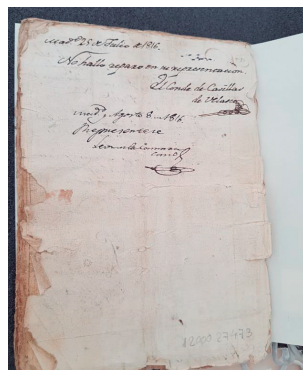 Mad.d 25 de Julio de 1816.
No hallo reparo en su representación
El Conde de Casillas
de Velasco
Mad.d y Agosto 8 de 1816
Represéntese
12000 27473